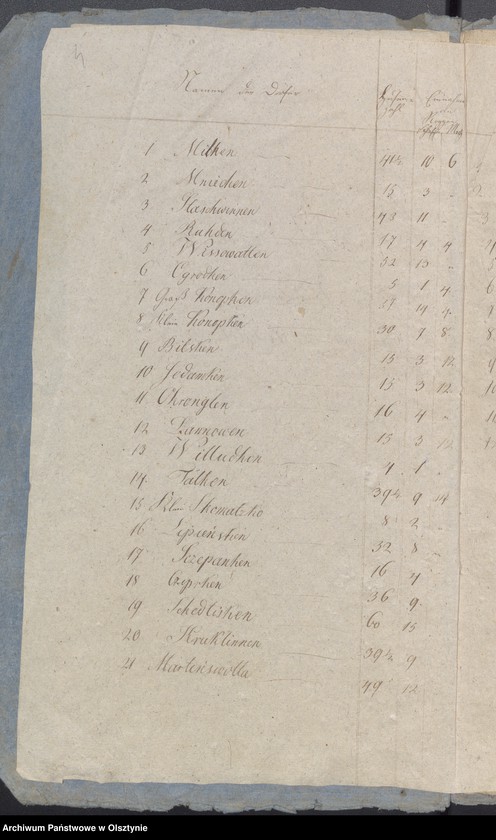 Namen der Dörfer Huben Zahl Einnahme
Roggen
Schffl Mtz
1 Milken 41½ 10 6
2 Mniechen 15 3 -
3 Staschwinnen 43 11 -
4 Ruhden 17 4 4
5 Wissowatten 52 13 -
6 Ogrodken 5 1 4
7 Groß Konopken
8 Klein Konopken 30 7 8
9 Bilsken 15 3 12
10 Jedamken 15 3 12
11 Chronglen 16 4 -
12 Dannowen 15 3 12
13 Willudken 4 1 -
14 Talken 39½ 9 14
15 Klein Skomatzko 8 2 -
16 Lipinsken 32 8 -
17 Sczepanken 16 4
18 Czyprken 36 9
19 Schedlisken 60 15
20 Kruklinnen 39½ 9
21 Martenswolla 49 12
Archiwum Państwowe w Olsztynie